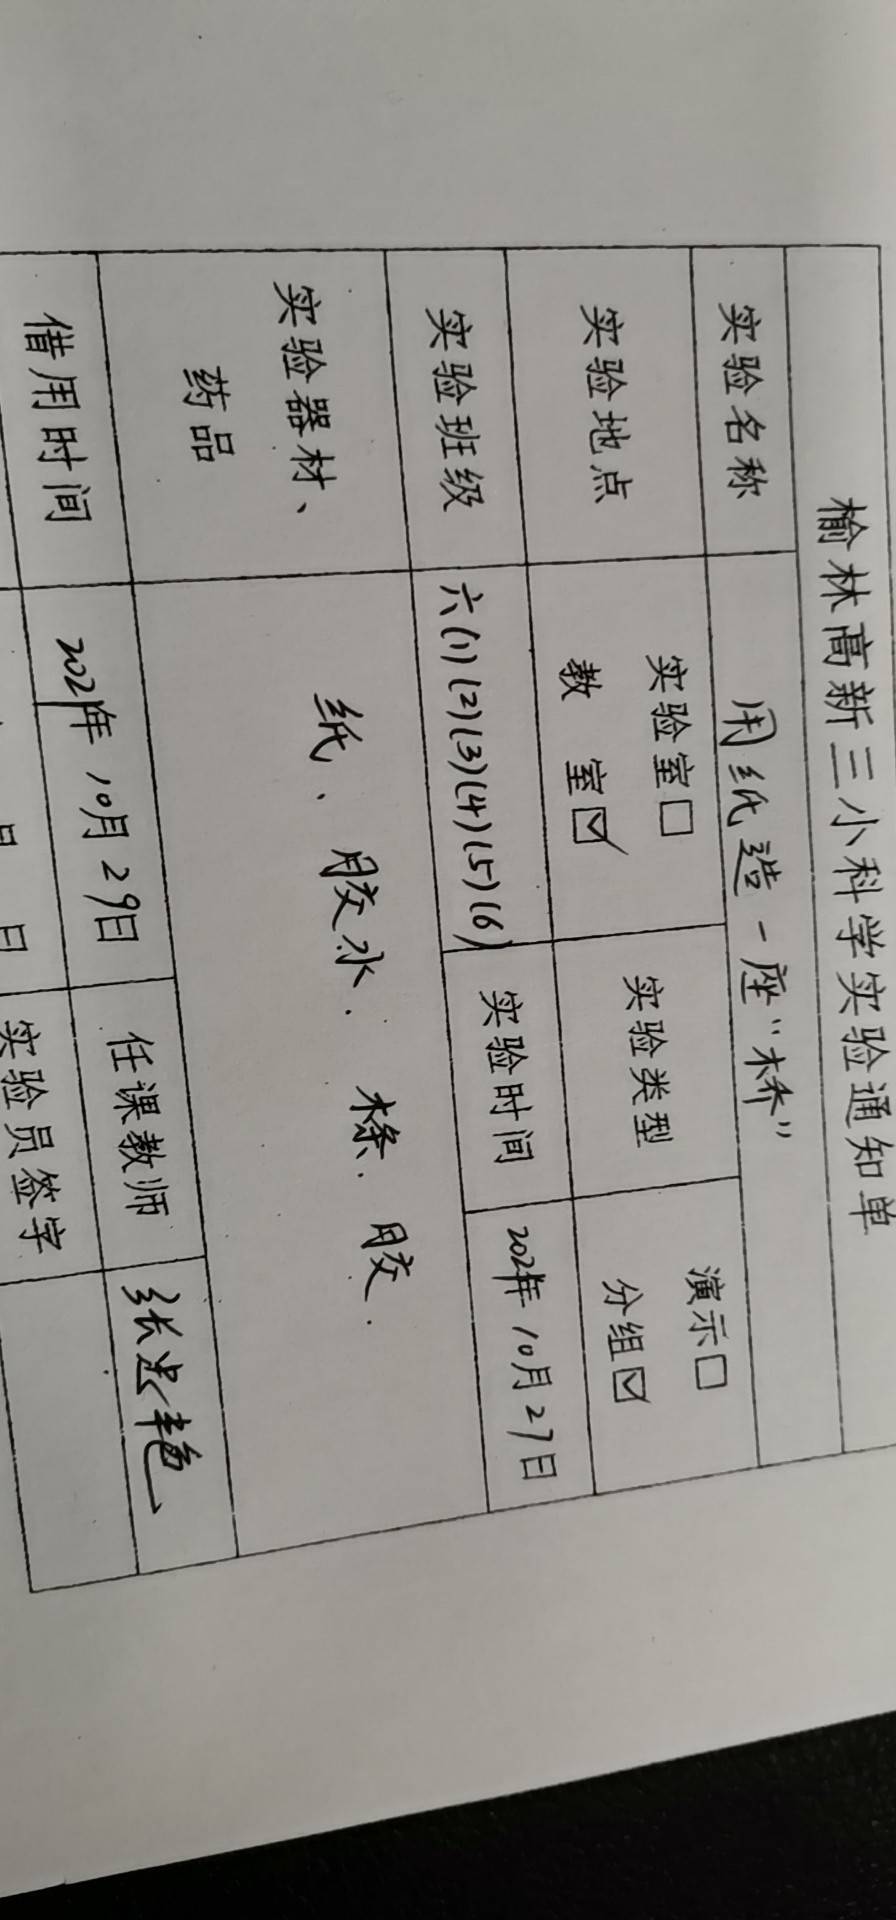 榆林高新三小科学实验通知单
实验名称 用纸造一座“桥”
实验地点 实验室□ 教 室☑ 实验类型 演示□ 分组☑
实验班级 六(1)(2)(3)(4)(5)(6) 实验时间 2021年10月27日
实验器材、药品 纸、胶水. 木条. 胶.
借用时间 2021年10月29日 任课教师 张忠艳
月 日 实验员签字